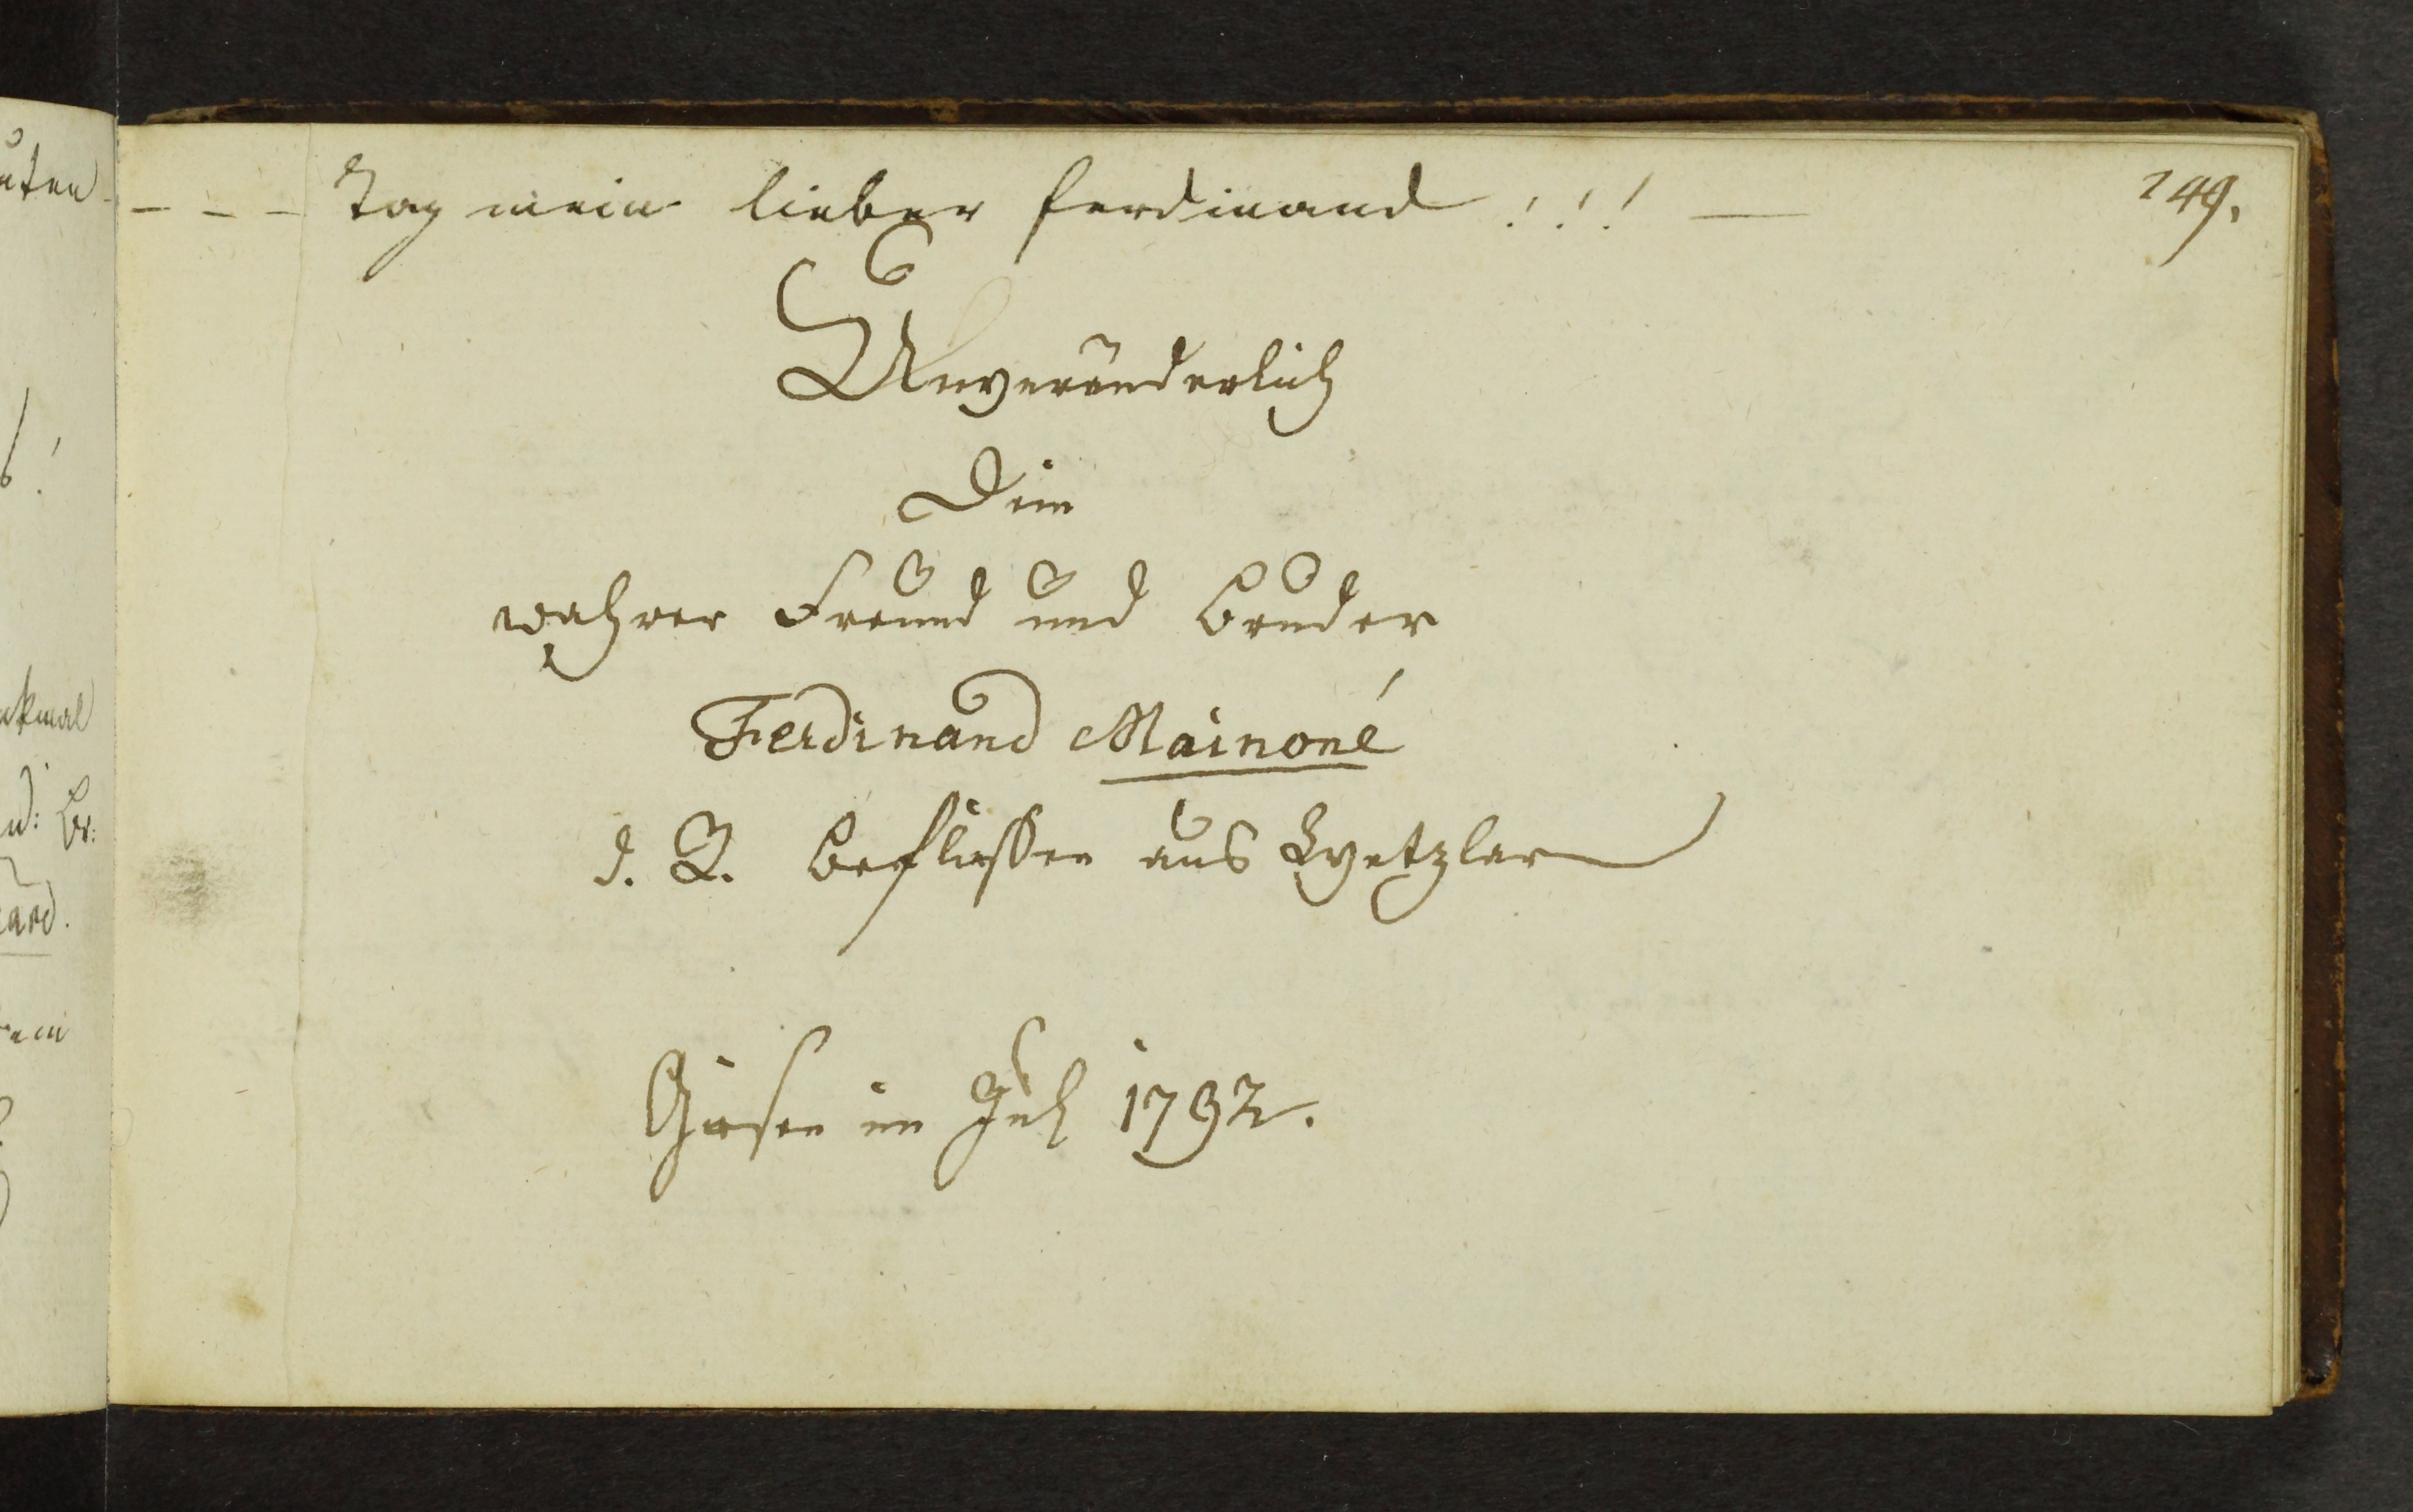 149.
– – – Tag mein lieber Ferdinand !!! —
Unveränderlich
Dein
wahrer Freund und Bruder
Ferdinand Mainoné
d. R. Befliessen aus Wetzlar
Giesen im Jul 1792.